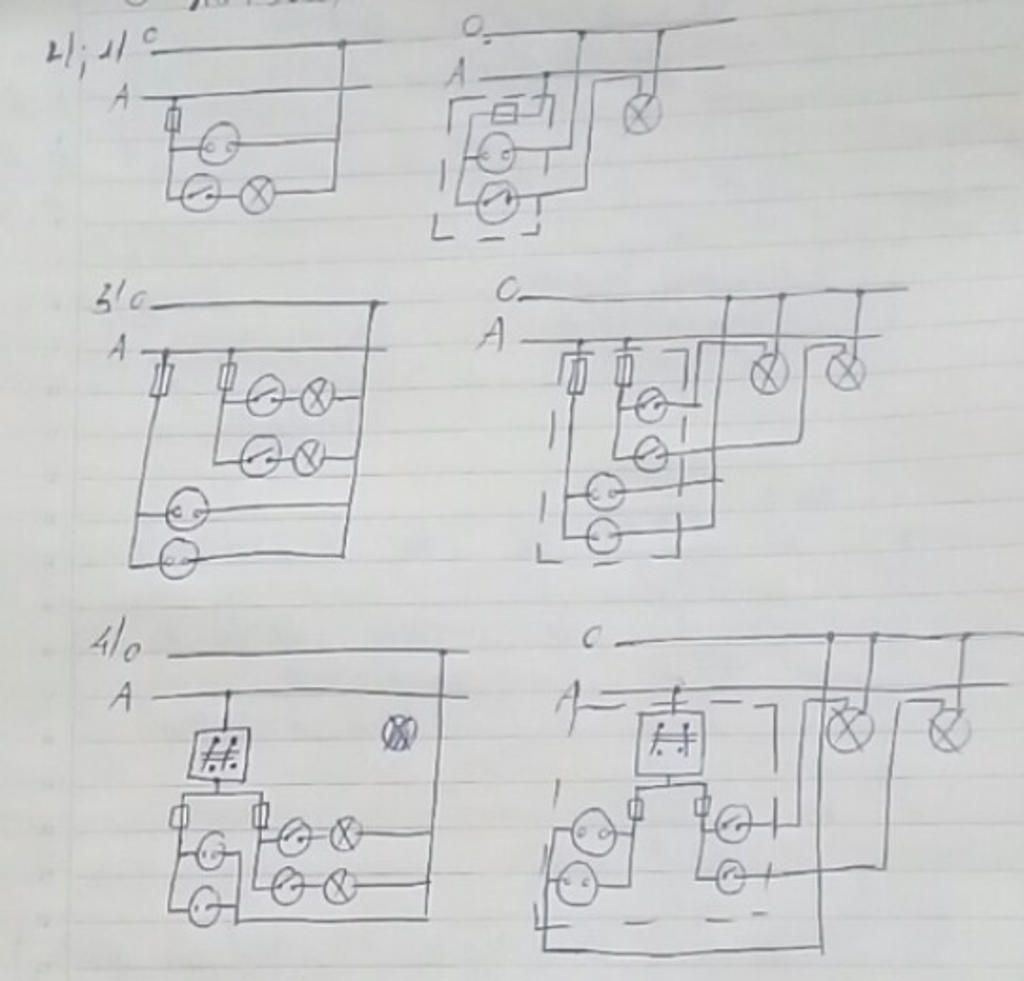 2/; 1/ O O
A A
3/ O O
A A
4/ O O
A A